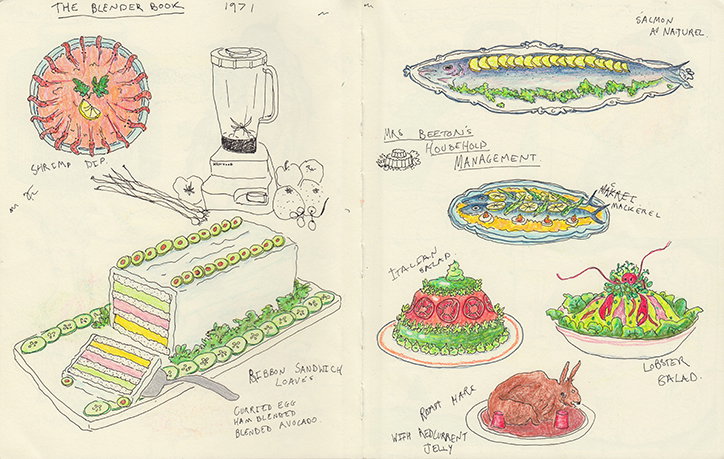 THE BLENDER BOOK 1971
SHRIMP DIP.
KENWOOD
RIBBON SANDWICH
LOAVES
CURRIED EGG
HAM BLENDED
BLENDED AVOCADO.
SALMON
AU NATUREL
MRS BEETON'S
HOUSEHOLD
MANAGEMENT.
MACKEREL
ITALIAN
SALAD
LOBSTER
SALAD.
ROAST HARE
WITH REDCURRENT
JELLY